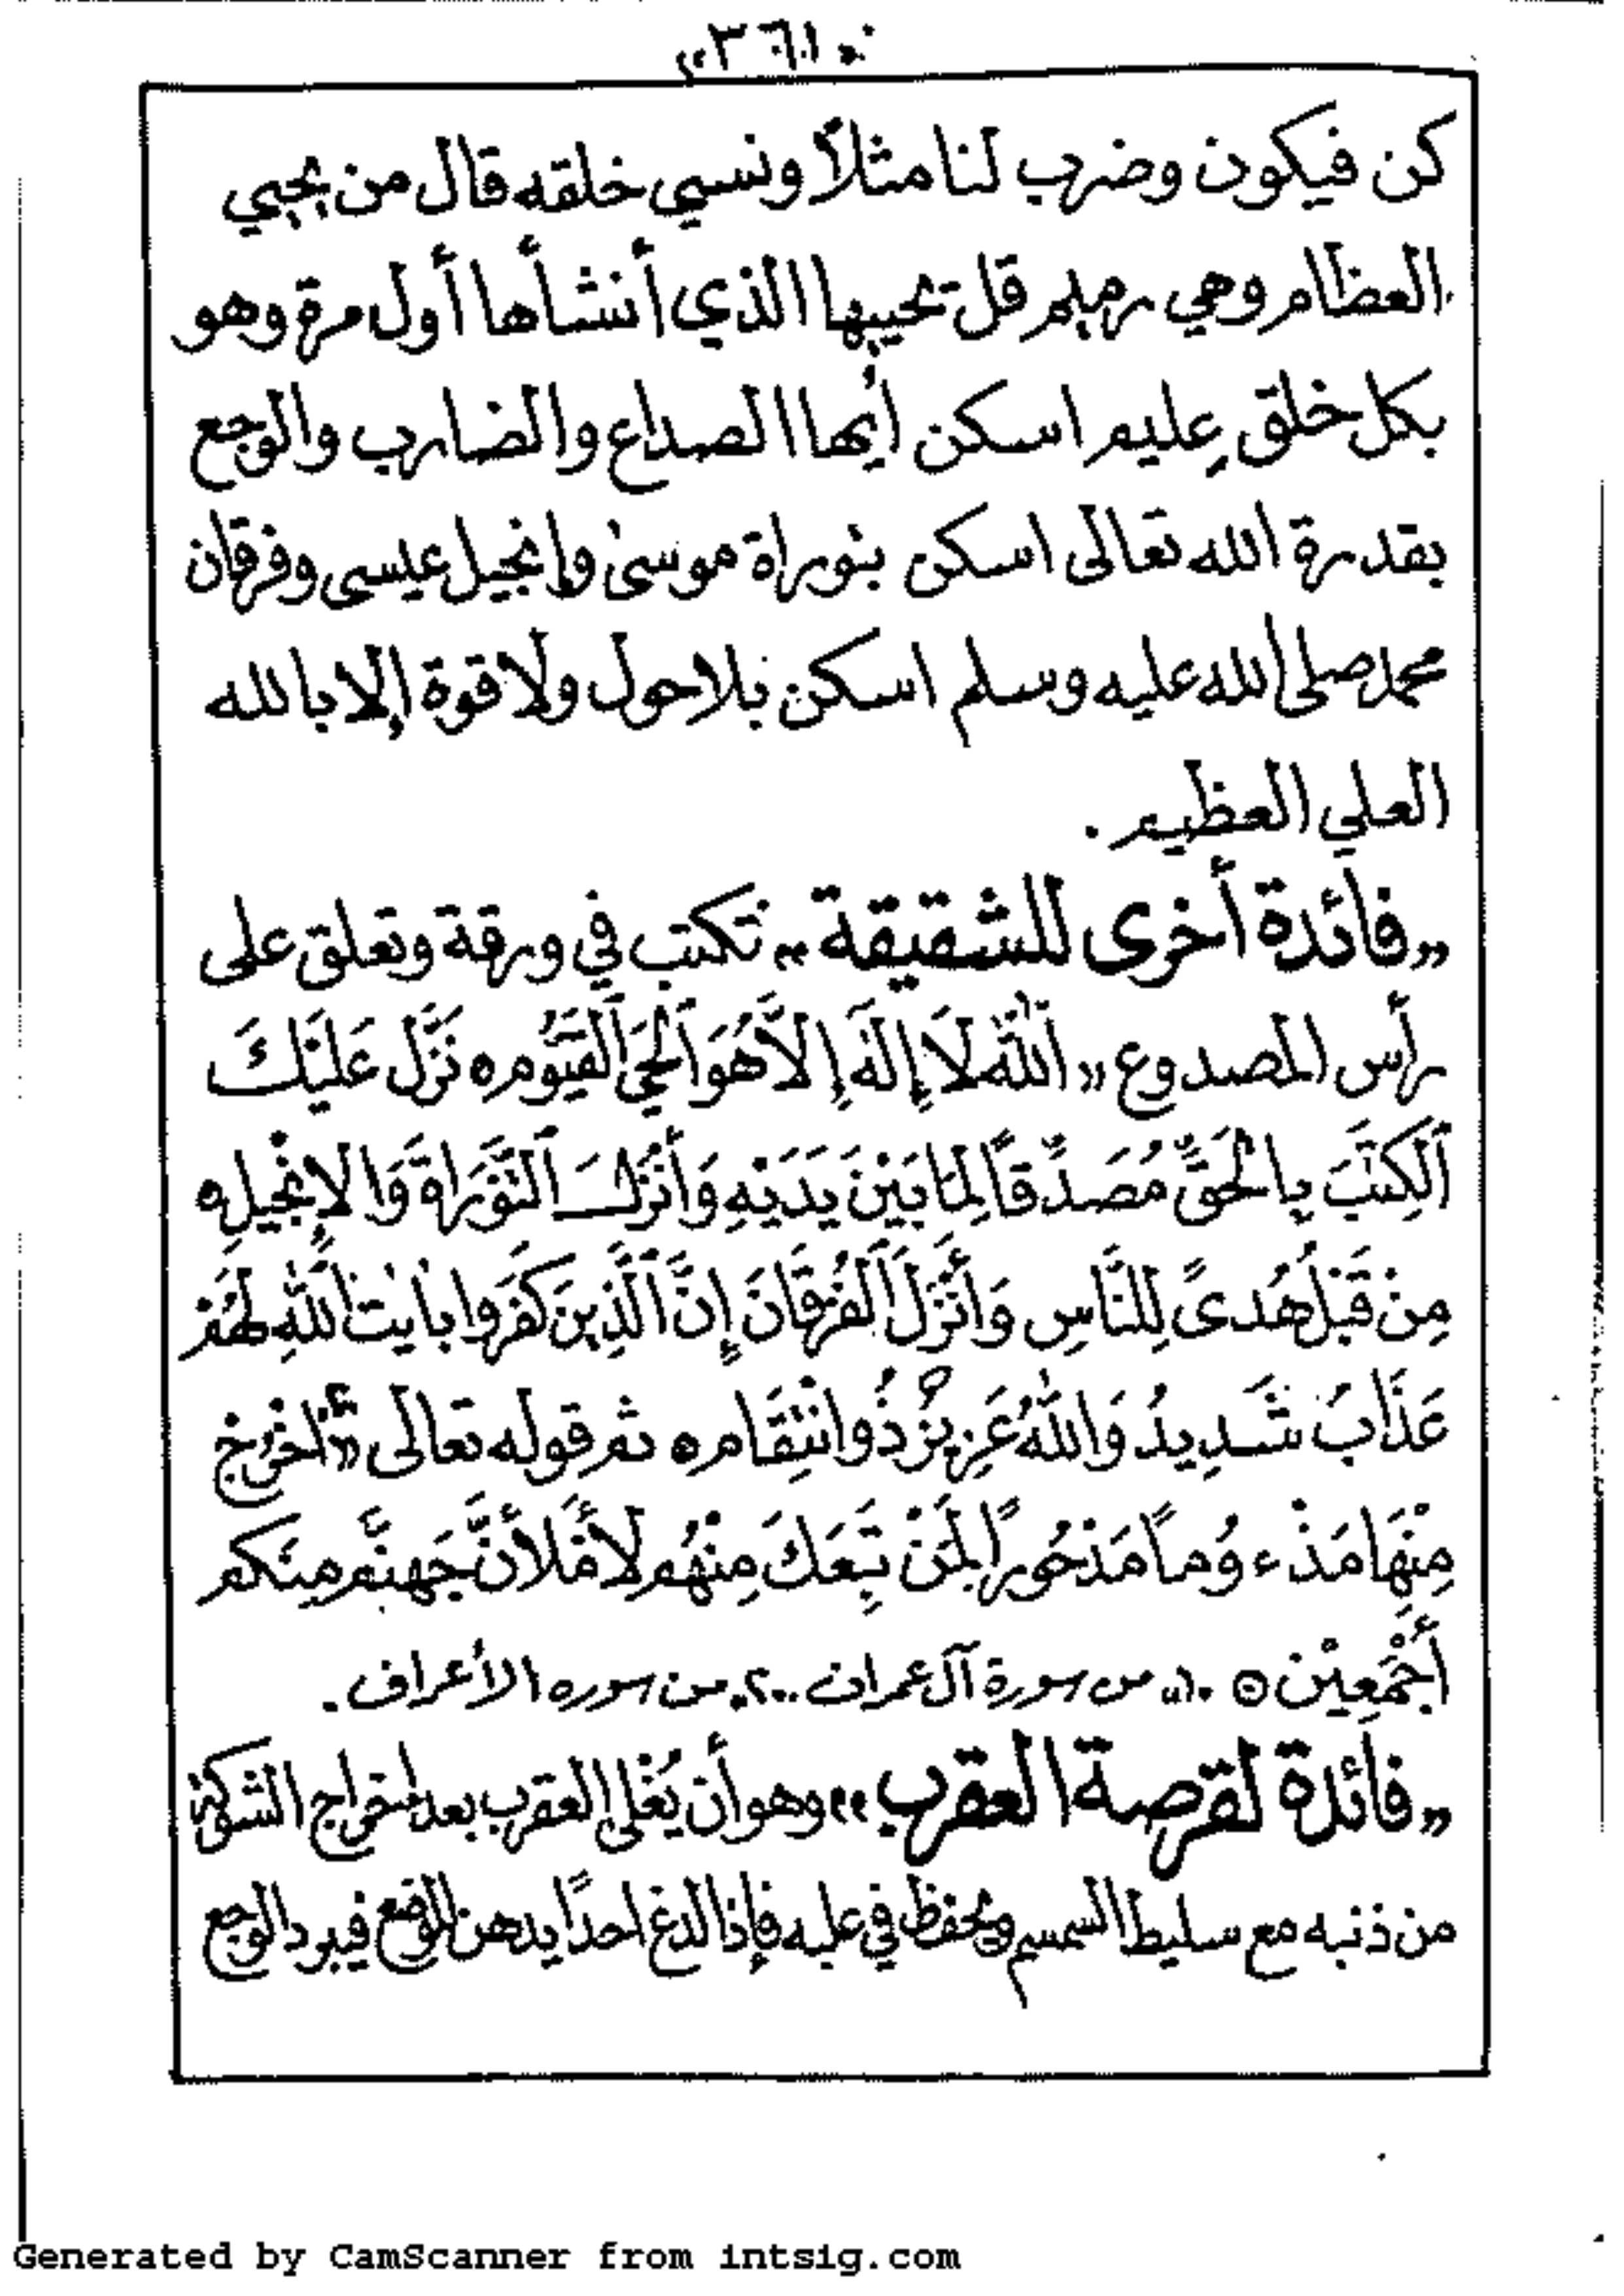 «٣٦١»
كن فيكون وضرب لنا مثلاً ونسي خلقه قال من يحيي
العظام وهي رميم قل يحييها الذي أنشأها أول مرة وهو
بكل خلق عليم اسكن أيها الصداع والضارب والوجع
بقدرة الله تعالى اسكن بتوراة موسىٰ وإنجيل عيسى وفرقان
محمد صلى الله عليه وسلم اسكن بلا حول ولا قوة إلا بالله
العلي العظيم .
«فائدة أخرى للشقيقة» تكتب في ورقة وتعلق على
رأس المصدوع «ٱللَّهُ لَا إِلَهَ إِلاَّ هُوَ ٱلْحَيُّ ٱلْقَيُّوم ٥ نَزَّلَ عَلَيْكَ
ٱلْكِتَٰبَ بِالْحَقِّ مُصَدِّقاً لِمَا بَيْنَ يَدَيْهِ وَأَنْزَلَ ٱلتَّوْرَاةَ وَالإِنْجِيلَ ٥
مِنْ قَبْلُ هُدىً لِلنَّاسِ وَأَنْزَلَ ٱلْفُرْقَانَ إِنَّ ٱلَّذِينَ كَفَرُوا بِأٰيٰتِ ٱللَّهِ لَهُمْ
عَذَابٌ شَدِيدُ وَاللَّهُ عَزِيزُ ذُو انْتِقَام ٥ ثم قوله تعالى «اخْرُج
مِنْهَا مَذْءُوماً مَدْحُوراً لَمَنْ تَبِعَكَ مِنْهُم لَأَمْلَأَنَّ جَهَنَّم مِنكم
أَجْمَعِيْن ⊙ ١٠» من سورة آل عمران ٢٠٠. من سوره الأعراف .
«فائدة لقرصة العقرب» وهو أن يُغلى العقرب بعد اخراج الشوكة
من ذنبه مع سليط السمسم ويحفظ في علبه فإذا لدغ احداً يدهن الموضع فيبرد الوجع
Generated by CamScanner from intsig.com